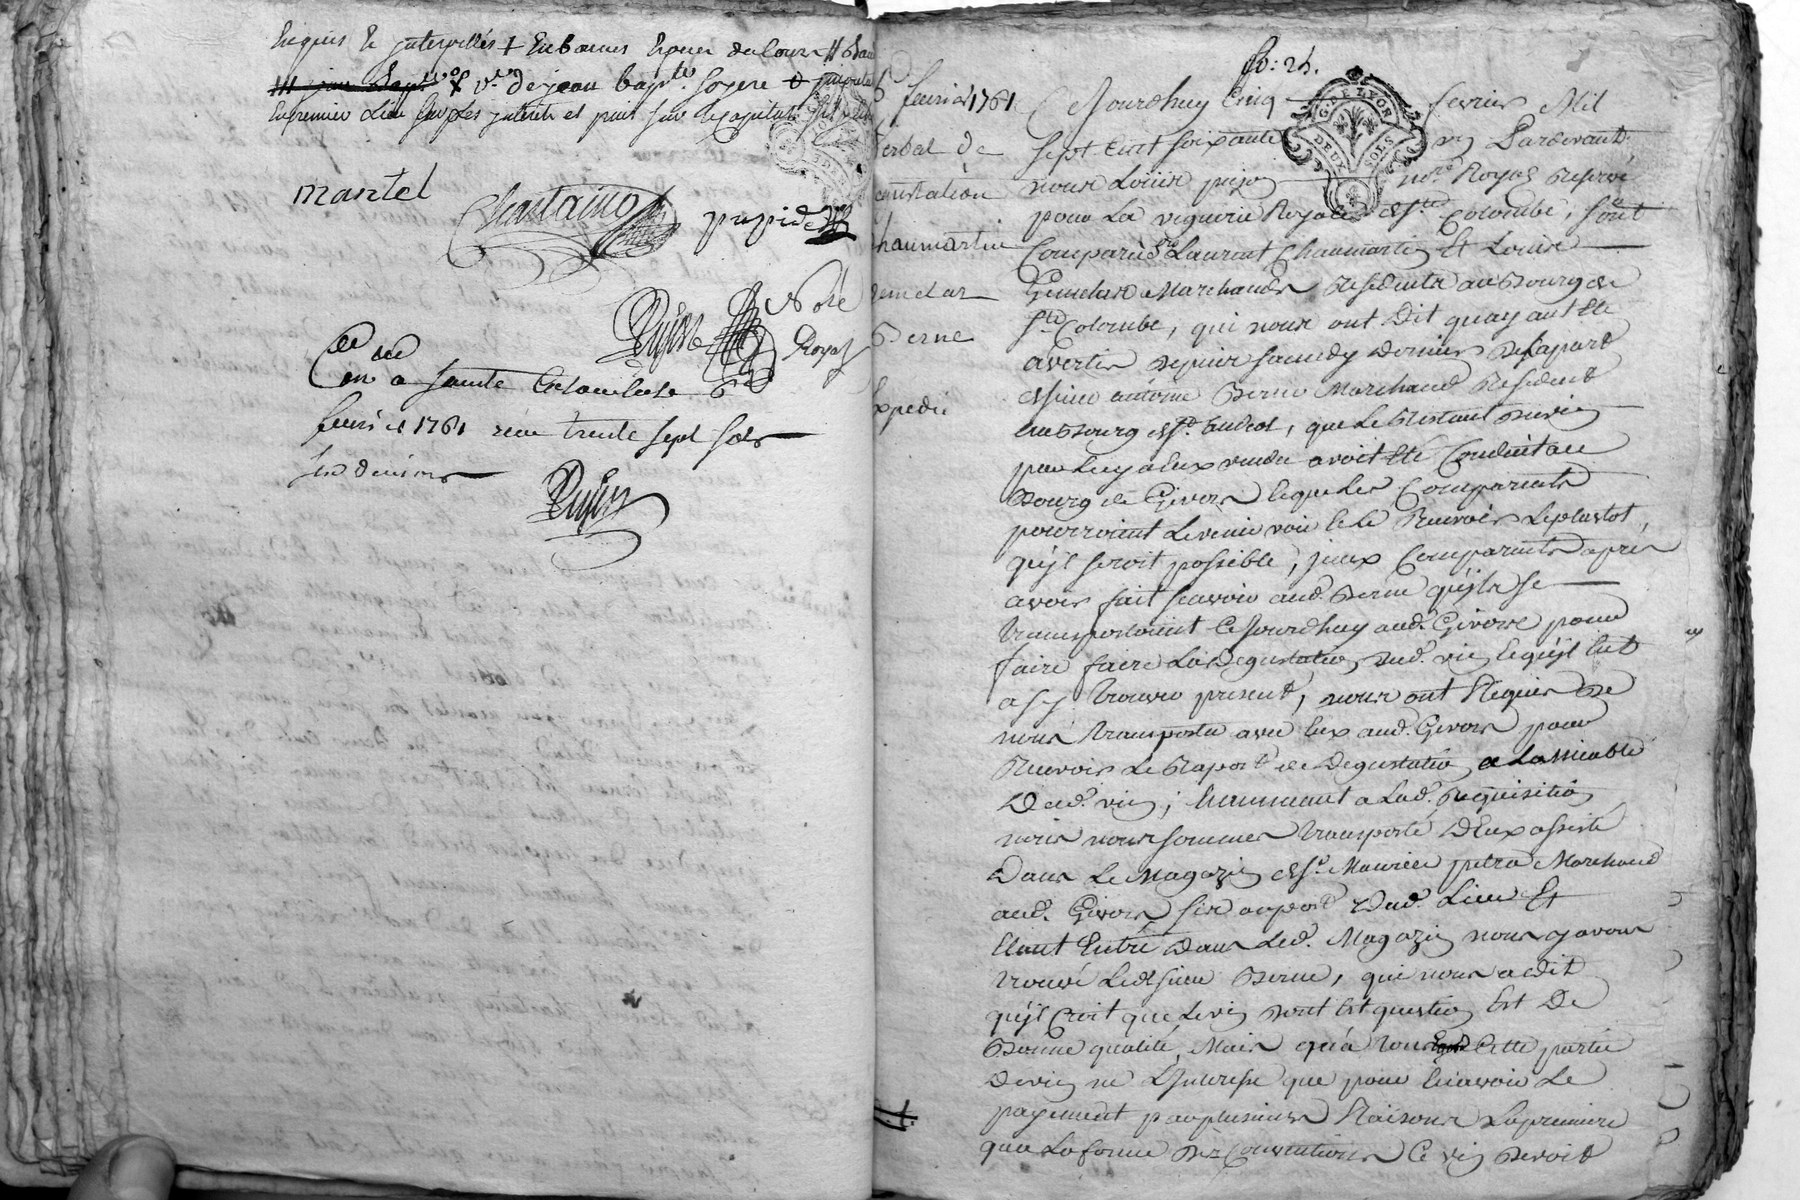 Requis et interpellés + en bonnes epoux du cours # 
ve de jean bapte foyere & 
en premier lieu sur les interets et puis sur le capital
mantel
Chastaing
Pujos Nore
Royal
Cllé
a sainte Colombe le 6
fevrier 1761 receu trente sept sols
six deniers
Pujos
fo: 24.
6 fevrier 1761
verbal de
gustation
Chaumartin
Gemelas
Berne
Expedié
G. DE LYON
DEUX SOLS
Cejourdhuy Cinq fevrier Mil
sept cent soixante un Pardevant
nous Louis pujos nore Royal Reservé
pour La viguerie Royale de Ste Colombe, sont
Comparus sr Laurent Chaumartin Et Louis
Gemelas Marchands Residents au Bourg de
Ste Colombe, qui nous ont dit quayant été
avertis depuis samedy dernier de la part
de sieur antoine Berne Marchand Resident
au Bourg de st andeol, que Le Restant du vin
par Luy a Eux vendu avoit été Conduit au
Bourg de Givors lequel Les Comparants
pourroient Le venir voir et Le Recevoir Le plustot,
quyl seroit possible, yeux Comparants apres
avoir fait scavoir aud. Berne quyls se
transportoient Cejourdhuy aud. Givors pour
faire faire La degustation dud. vin et quyl eut
a sy trouver present, nous ont Requis de
nous transporter avec Eux aud. Givors pour
Recevoir Le Raport de degustation a Lamiable
Dud. vin; et acausant a Lad. Requisition
nous nous sommes transporté d'Eux assisté
Dans Le Magazin de sr. Maurice petra Marchand
aud. Givors sis au port dud. Lieu Et
étant Entré dans Led. Magazin nous y avons
trouvé Ledt sieur Berne, qui nous a dit
quyl Croit que Le vin dont Est question Est de
Bonne qualité, Mais qu'a Cette partie
de vin ne L'Interesse que pour En avoir Le
payement par plusieurs Raisons La premiere
que La forme des Conventions Ce vin devoit